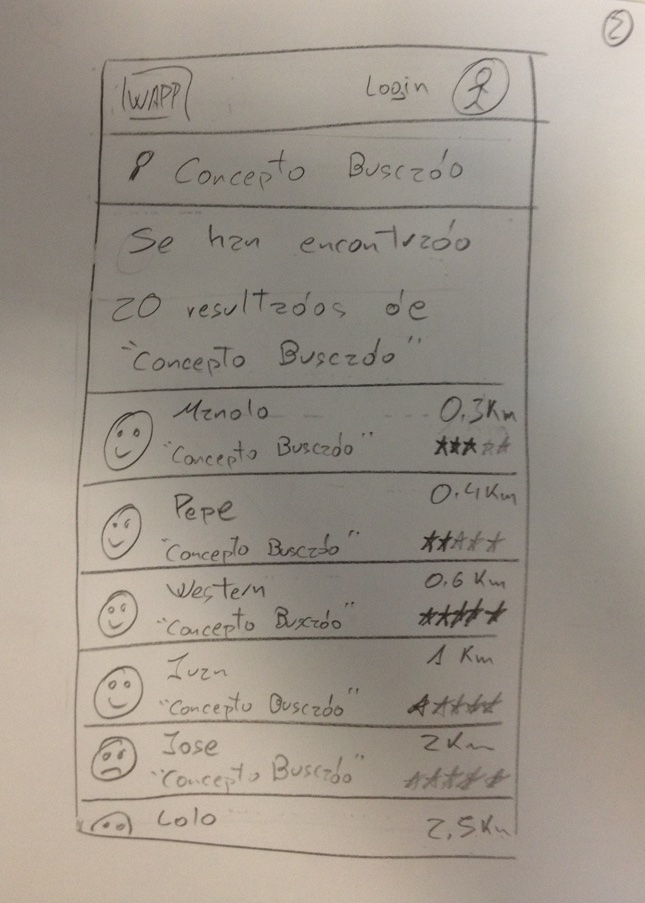 2
WAPP Login
Concepto Buscado
Se han encontrado
20 resultados de
"Concepto Buscado"
Manolo 0.3Km
"Concepto Buscado"
Pepe 0.4Km
"Concepto Buscado"
Western 0.6 Km
"Concepto Buscado"
Ivan 1 Km
"Concepto Buscado"
Jose 2Km
"Concepto Buscado"
Lolo 2,5Km